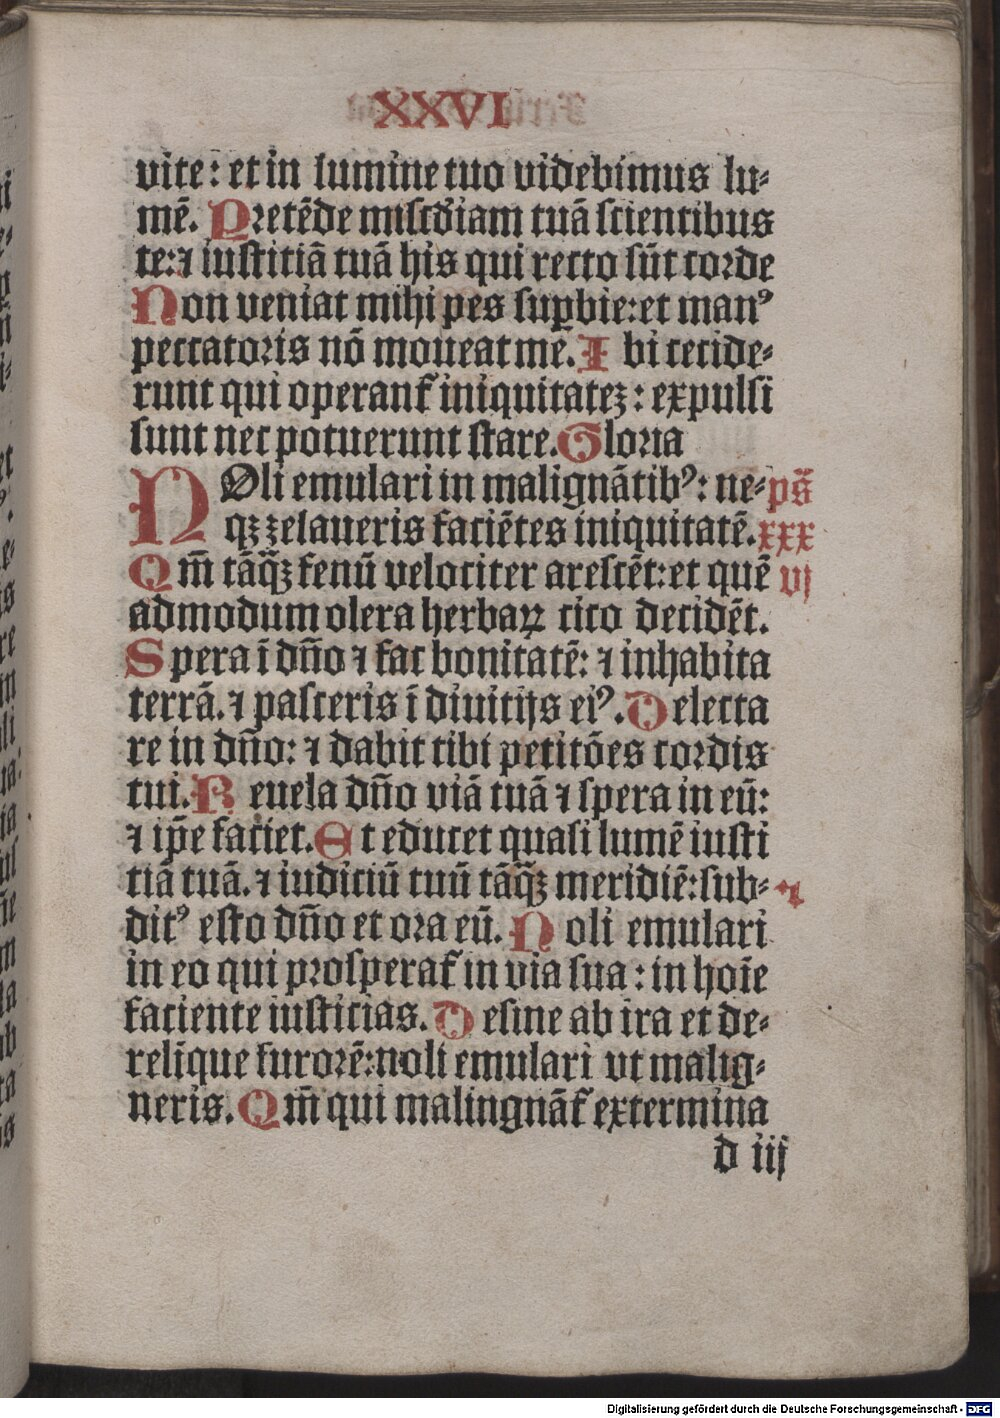 XXVI
vite: et in lumine tuo videbimus lu⸗
mē. Pretēde miscdiam tuā scientibus
te: ⁊ iustitiā tuā his qui recto sūt corde
Non veniat mihi pes suꝑbie: et manꝰ
peccatoris nō moueat me. I bi cecide⸗
runt qui operant̄ iniquitateꝫ: expulsi
sunt nec potuerunt stare. Gloria
NOli emulari in malignātibꝰ: ne⸗ ps̄
qꝫ zelaueris faciētes iniquitatē. xxx
Qm̄ tāq̄ꝫ fenū velociter arescēt: et quē vj
admodum olera herbaꝝ cito decidēt.
Spera ī dn̄o ⁊ fac bonitatē: ⁊ inhabita
terrā. ⁊ pasceris ī diuitijs eiꝰ. Delecta
re in dn̄o: ⁊ dabit tibi petitōes cordis
tui. Reuela dn̄o viā tuā ⁊ spera in eū:
⁊ ip̄e faciet. Et educet quasi lumē iusti
tiā tuā. ⁊ iudiciū tuū tāq̄ꝫ meridiē: sub⸗ ⁊
ditꝰ esto dn̄o et ora eū. Noli emulari
in eo qui prosperat̄ in via sua: in hoīe
faciente iusticias. Desine ab ira et de⸗
relīque furorē: noli emulari vt malig⸗
neris. Qm̄ qui malingnāt̄ extermina
d iij
Digitalisierung gefördert durch die Deutsche Forschungsgemeinschaft - DFG